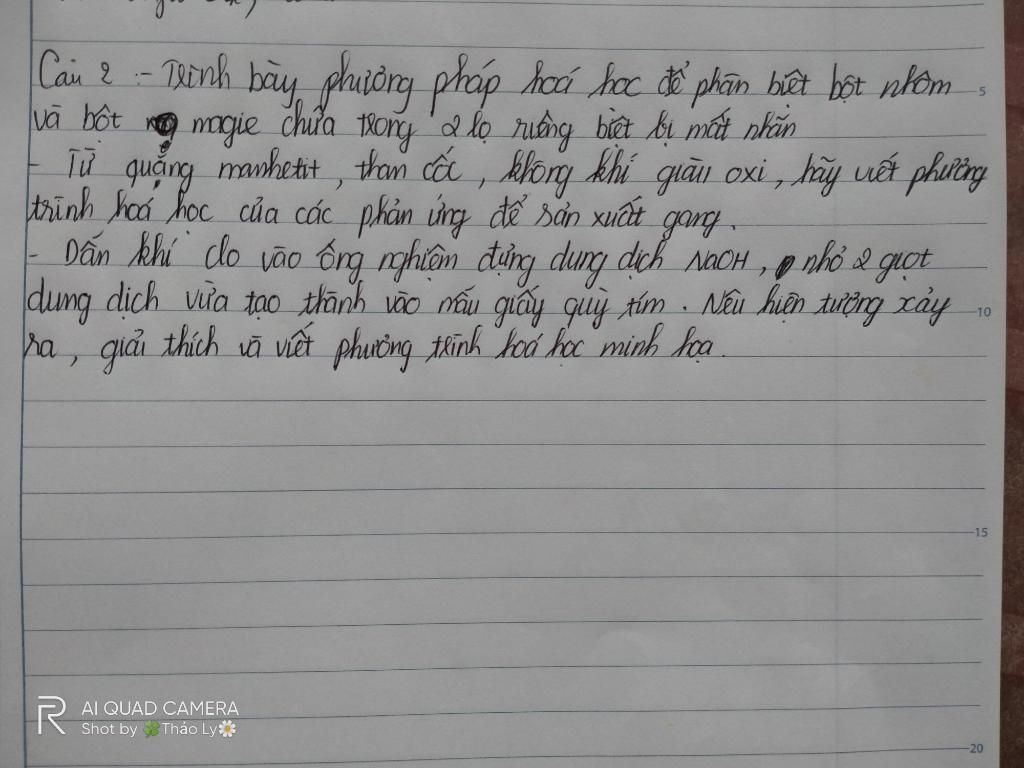 Câu 2 :- Trình bày phương pháp hoá học để phân biệt bột nhôm 5
và bột magie chứa trong 2 lọ riêng biệt bị mất nhãn
- Từ quặng manhetit, than cốc, không khí giàu oxi, hãy viết phương
trình hoá học của các phản ứng để sản xuất gang.
- Dẫn khí clo vào ống nghiệm đựng dung dịch NaOH, nhỏ 2 giọt
dung dịch vừa tạo thành vào mẩu giấy quỳ tím. Nêu hiện tượng xảy 10
ra, giải thích và viết phương trình hoá học minh họa.
15
AI QUAD CAMERA
Shot by 🍀Thảo Ly🌼
20